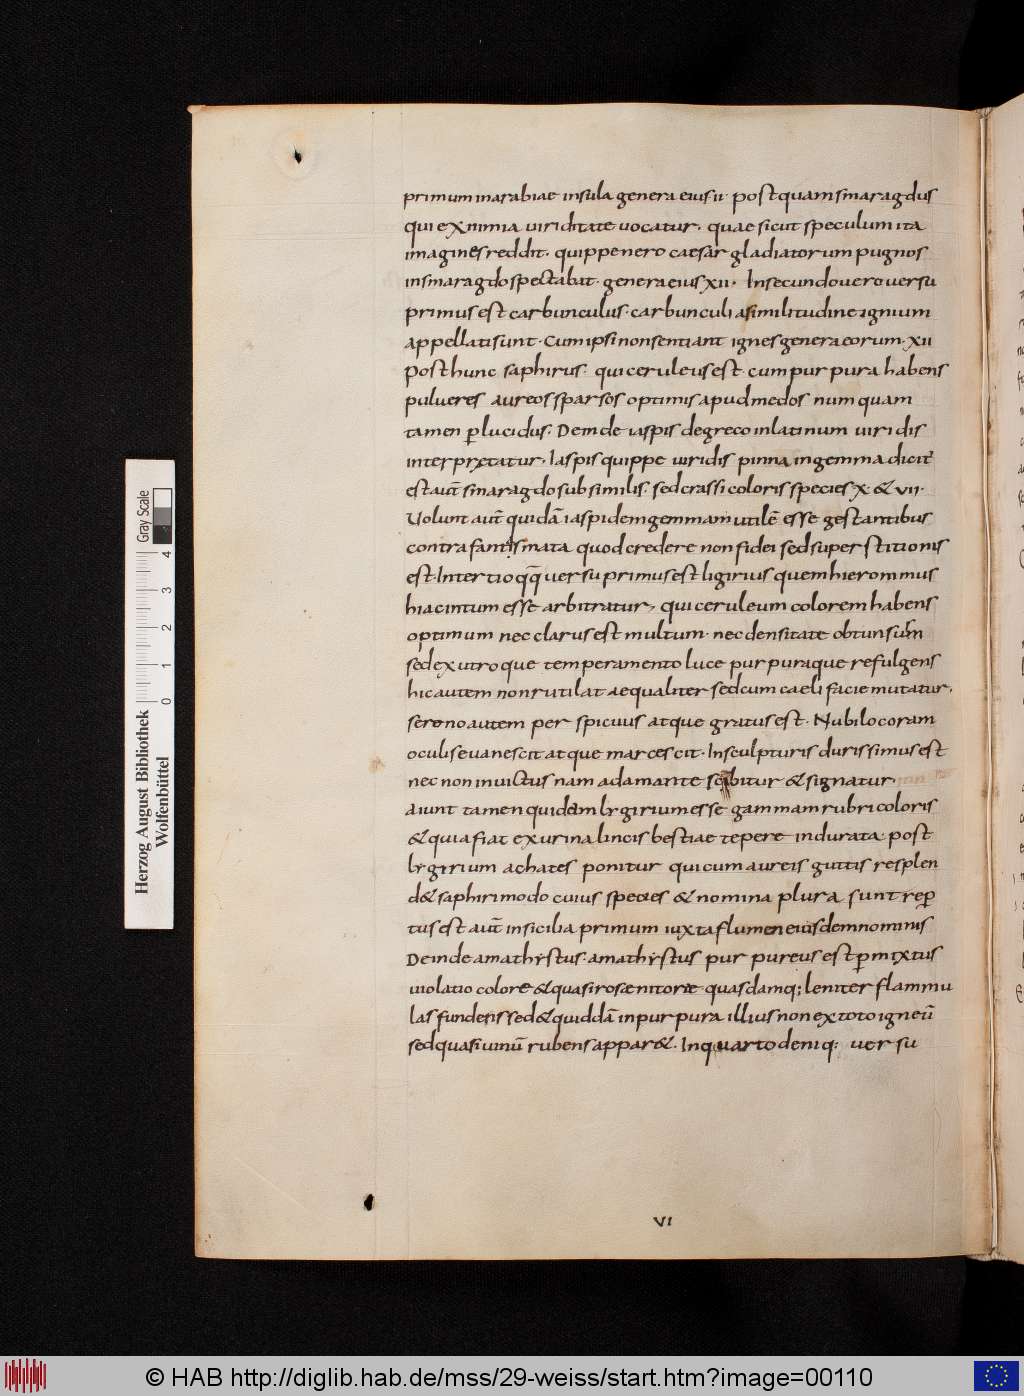 primum inarabiae insula genera eius·ii· postquam smaragdus
qui ex nimia uiriditate uocatur· quae sicut speculum ita
imagines reddit· quippe nero caesar gladiatorum pugnos
in smaragdo spectabat· genera eius xii· In secundo uero uersu
primus est carbunculus· carbunculi a similitudine ignium
appellati sunt· Cum ipsi non sentiant ignes genera eorum· xii
Post hunc saphirus· qui ceruleus est cum purpura habens
pulueres aureos sparsos optimis apud medos numquam
tamen ꝑlucidus· Deinde iaspis de greco in latinum uiridis
interprętatur· Iaspis quippe uiridis pinna in gemma dicit̄
est aut̄ smaragdo subsimilis· sed crassi coloris species x & vii·
Uolunt aut̄ quidā iaspidem gemmam utilē esse gestantibus
contra fantismata quod credere non fidei sed superstitionis
est· In tertio qq̄ uersu primus est ligirius quem hieronimus
hiacintum esse arbitratur, qui ceruleum colorem habens
optimum nec clarus est multum· nec densitate obtunsum
sed ex utroque temperamento luce purpuraque refulgens
hic autem non rutilat aequaliter sed cum caeli facie mutatur,
sereno autem perspicuus atque gratus est· Nubilo coram
oculis euanescit atque marcescit· In sculpturis durissimus est
nec non inuictus nam adamante scribitur & signatur·
aiunt tamen quidem lygirium esse gammam rubri coloris
& quia fiat ex urina lincis bestiae tepere indurata post
lygirium achates ponitur qui cum aureis guttis resplen
d& saphiri modo cuius species & nomina plura sunt reꝑ
tus est aut̄ in sicilia primum iuxta flumen eiusdem nominis
Deinde amathystus· amathystus purpureus est ꝑmixtus
uiolatio colore & quasi rosae nitore quasdamq; leniter flammu
las fundens sed & quiddā in purpura illius non ex toto igneū
sed quasi uinū rubens appar&· In quarto deniq: uersu
VI
Herzog August Bibliothek
Wolfenbüttel
0 1 2 3 4
Gray Scale
© HAB http://diglib.hab.de/mss/29-weiss/start.htm?image=00110